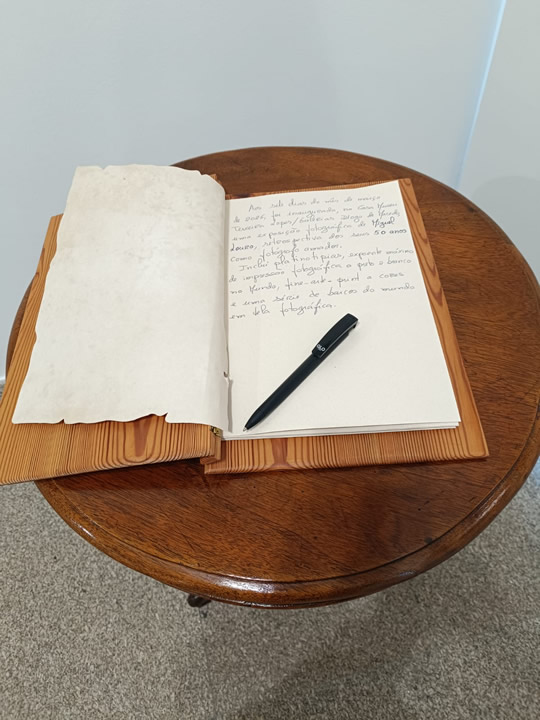 Aos sete dias do mês de março
de 2025, foi inaugurada, na Casa Museu
Teixeira Lopes/Galerias Diogo de Macedo,
uma exposição fotográfica de Miguel
Louro, retrospectiva dos seus 50 anos
como fotógrafo amador.
Inclui platinotipias, expoente máximo
da impressão fotográfica a preto e branco
no Mundo, fine-art print a cores
e uma série de barcos do mundo
em tela fotográfica.